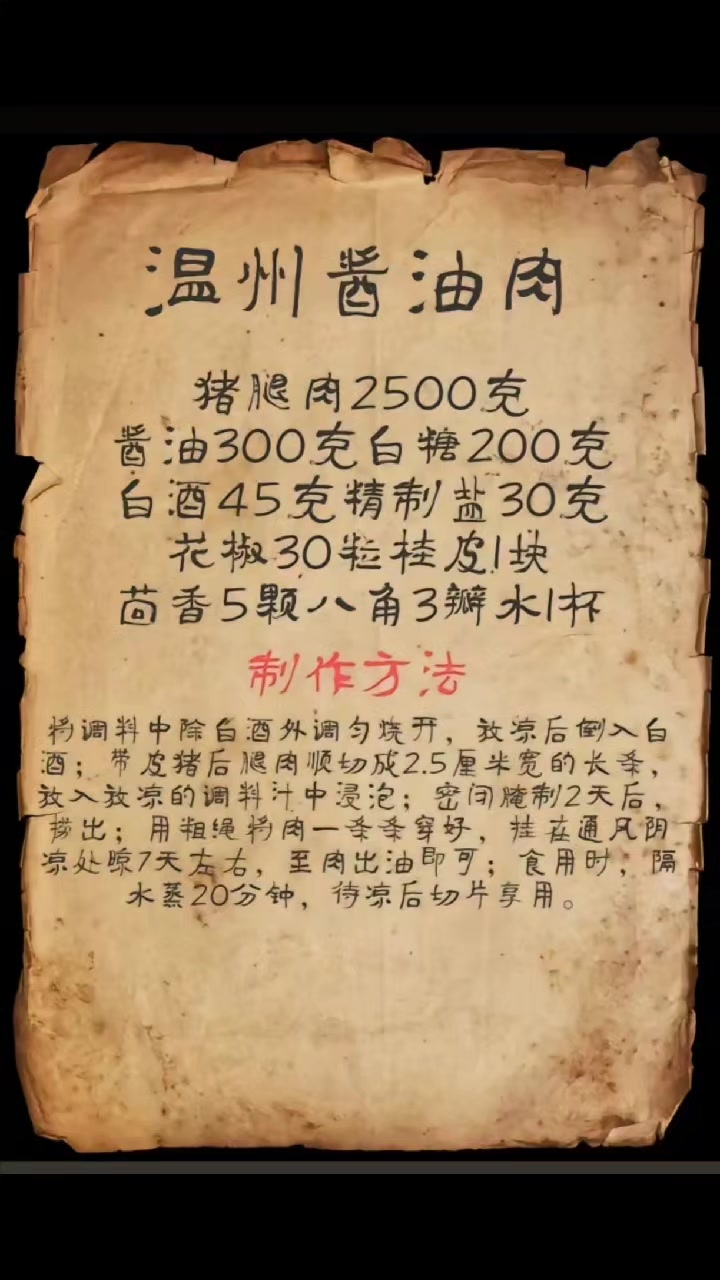 温州酱油肉
猪腿肉2500克
酱油300克白糖200克
白酒45克精制盐30克
花椒30粒桂皮1块
茴香5颗八角3瓣水1杯
制作方法
将调料中除白酒外调匀烧开，放凉后倒入白
酒；带皮猪后腿肉顺切成2.5厘米宽的长条，
放入放凉的调料汁中浸泡；密闭腌制2天后，
捞出；用粗绳将肉一条条穿好，挂在通风阴
凉处晾7天左右，至肉出油即可；食用时，隔
水蒸20分钟，待凉后切片享用。